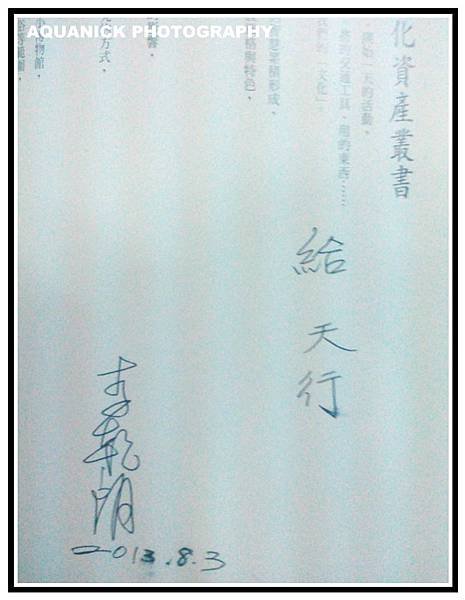 AQUANICK PHOTOGRAPHY
化資產叢書
開始一天的活動，
的交通工具、用的東西……
我們的「文化」。
累積形成，
格與特色。
方式，
博物館，
給
天行
李乾朗
2013.8.3